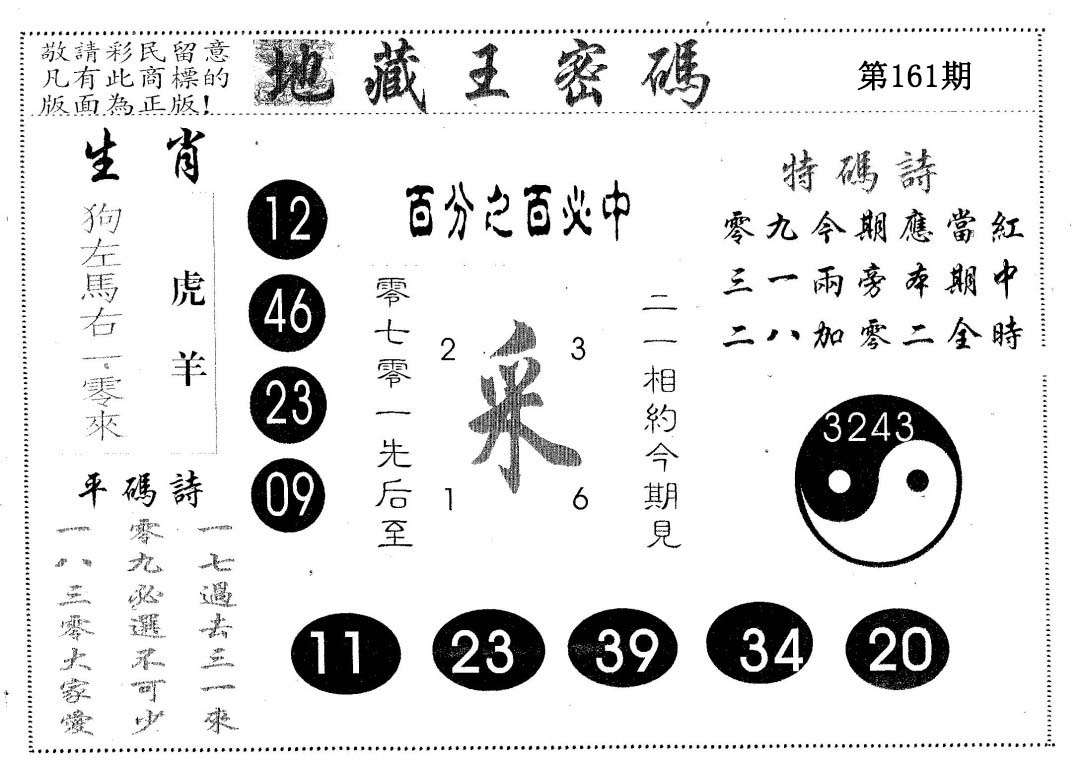 敬請彩民留意
凡有此商標的
版面為正版!
地藏王密碼
第161期
生肖
狗左馬右一零來
虎羊
12
46
23
09
百分之百必中
零七零一先后至
2
3
采
1
6
二一相約今期見
特碼詩
零九今期應當紅
三一兩旁本期中
二八加零二全時
3243
平碼詩
一七過去三一來
零九必選不可少
一八三零大家愛
11
23
39
34
20